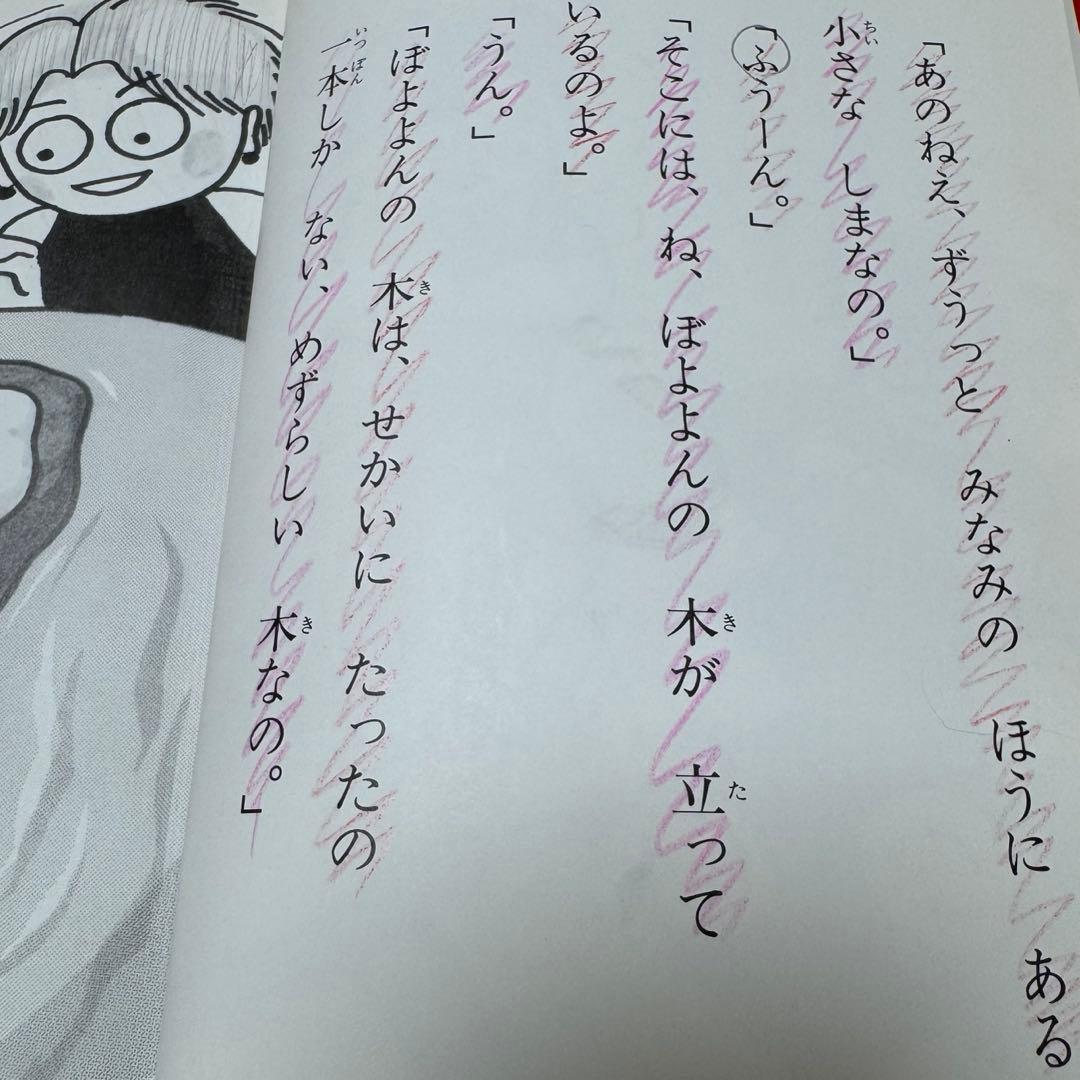 「あのねえ、ずうっと みなみの ほうに ある
小さな しまなの。」
「ふうーん。」
「そこには、ね、ぼよよんの 木が 立って
いるのよ。」
「うん。」
「ぼよよんの 木は、せかいに たったの
一本しか ない、めずらしい 木なの。」